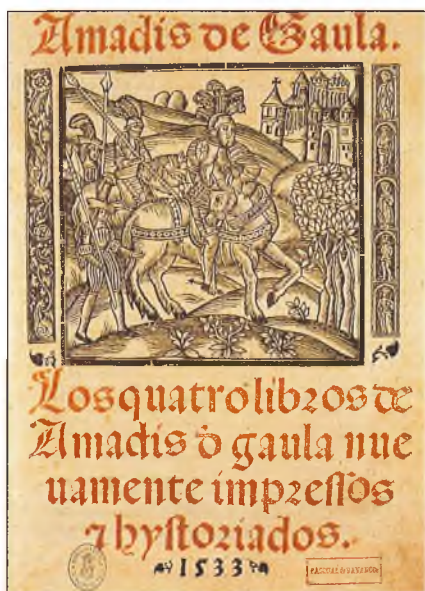 Amadis de Gaula.
Los quatro libros de
Amadis d̉ gaula nue
uamente impressos
⁊ hystoriados.
1533
PASCUAL DE GAYANGOS